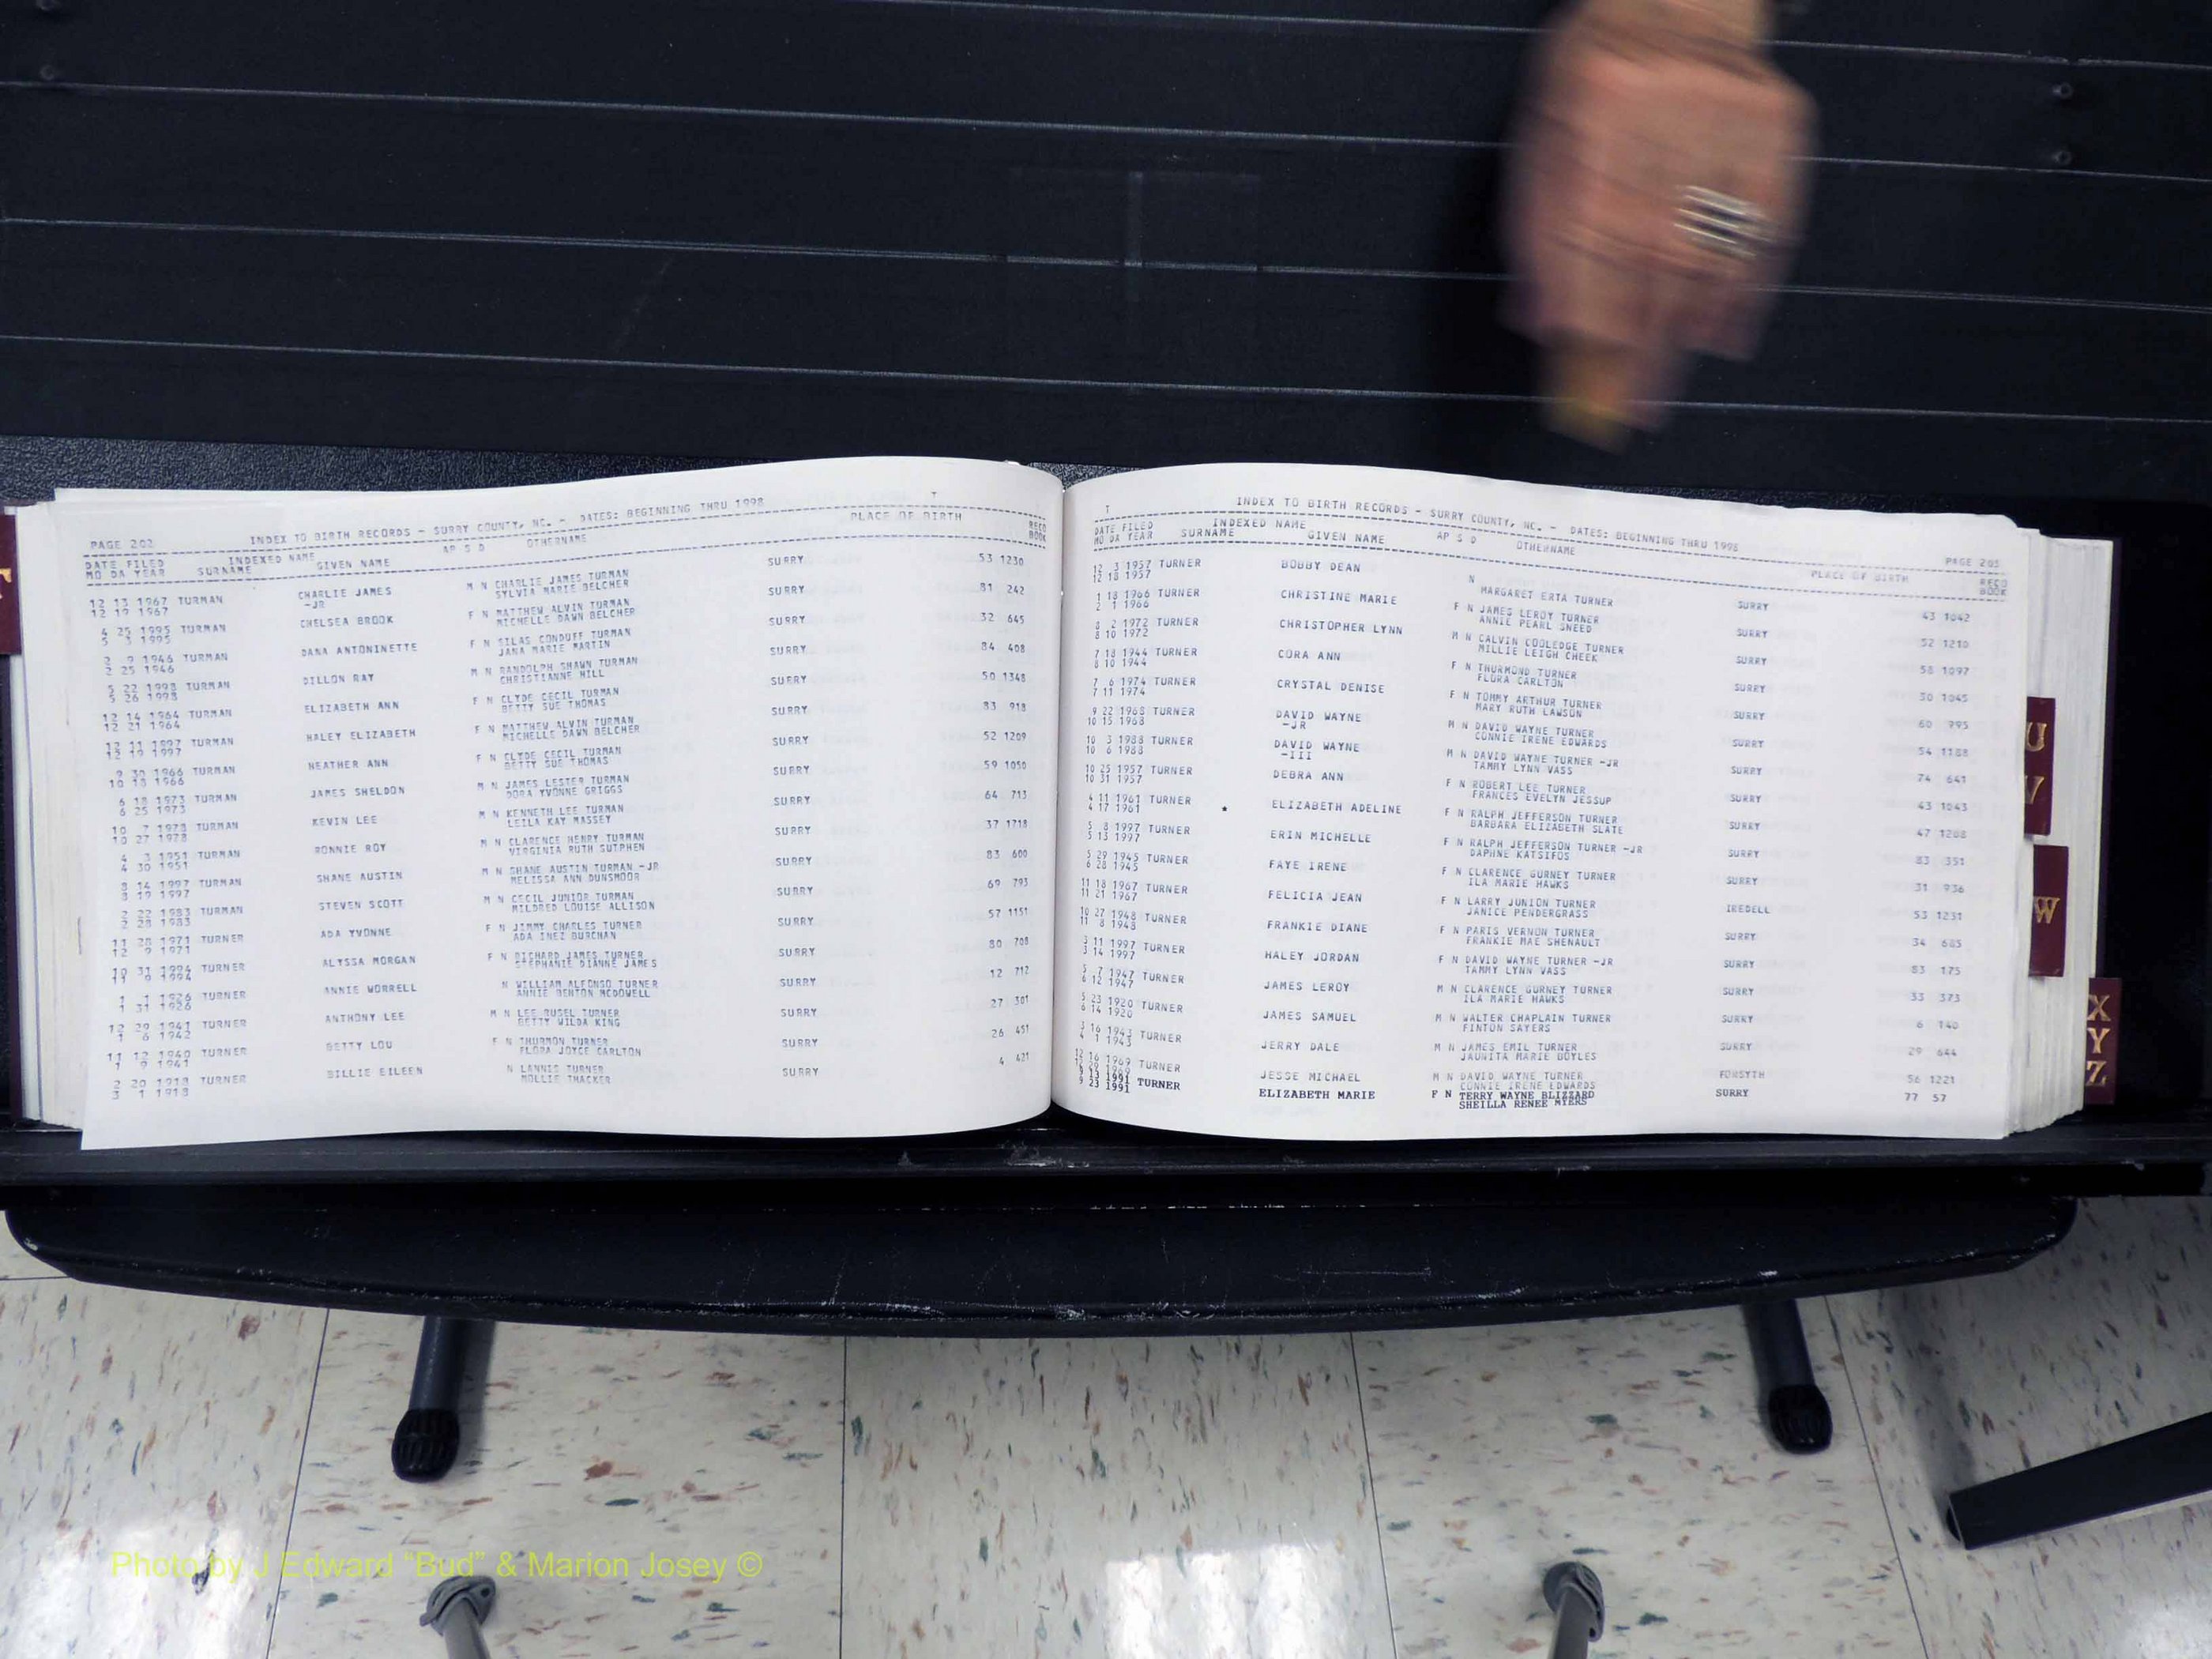 T
PAGE 202 INDEX TO BIRTH RECORDS - SURRY COUNTY, NC. - DATES: BEGINNING THRU 1998
DATE FILED INDEXED NAME AP S D OTHERNAME PLACE OF BIRTH RECO
MO DA YEAR SURNAME GIVEN NAME BOOK
12 13 1967 TURMAN CHARLIE JAMES M N CHARLIE JAMES TURMAN SURRY 53 1230
12 19 1967 -JR SYLVIA MARIE BELCHER
4 25 1995 TURMAN CHELSEA BROOK F N MATTHEW ALVIN TURMAN SURRY 81 242
5 3 1995 MICHELLE DAWN BELCHER
2 9 1946 TURMAN DANA ANTONINETTE F N SILAS CONDUFF TURMAN SURRY 32 645
2 25 1946 JANA MARIE MARTIN
5 22 1998 TURMAN DILLON RAY M N RANDOLPH SHAWN TURMAN SURRY 84 408
5 26 1998 CHRISTIANNE HILL
12 14 1964 TURMAN ELIZABETH ANN F N CLYDE CECIL TURMAN SURRY 50 1348
12 21 1964 BETTY SUE THOMAS
12 11 1997 TURMAN HALEY ELIZABETH F N MATTHEW ALVIN TURMAN SURRY 83 918
12 19 1997 MICHELLE DAWN BELCHER
9 30 1966 TURMAN HEATHER ANN F N CLYDE CECIL TURMAN SURRY 52 1209
10 18 1966 BETTY SUE THOMAS
6 18 1973 TURMAN JAMES SHELDON M N JAMES LESTER TURMAN SURRY 59 1050
6 25 1973 DORA YVONNE GRIGGS
10 7 1978 TURMAN KEVIN LEE M N KENNETH LEE TURMAN SURRY 64 713
10 27 1978 LEILA KAY MASSEY
4 3 1951 TURMAN RONNIE ROY M N CLARENCE HENRY TURMAN SURRY 37 1718
4 30 1951 VIRGINIA RUTH SUTPHEN
8 14 1997 TURMAN SHANE AUSTIN M N SHANE AUSTIN TURMAN -JR SURRY 83 600
8 19 1997 MELISSA ANN DUNSMOOR
2 22 1983 TURMAN STEVEN SCOTT M N CECIL JUNIOR TURMAN SURRY 69 793
2 28 1983 MILDRED LOUISE ALLISON
11 28 1971 TURNER ADA YVONNE F N JIMMY CHARLES TURNER SURRY 57 1151
12 9 1971 ADA INEZ BURCHAN
10 31 1994 TURNER ALYSSA MORGAN F N RICHARD JAMES TURNER SURRY 80 708
11 9 1994 STEPHANIE DIANNE JAMES
1 1 1926 TURNER ANNIE WORRELL N WILLIAM ALFONSO TURNER SURRY 12 712
1 31 1926 ANNIE BENTON MCDOWELL
12 29 1941 TURNER ANTHONY LEE M N LEE RUSEL TURNER SURRY 27 301
1 6 1942 BETTY WILDA KING
11 12 1940 TURNER BETTY LOU F N THURMON TURNER SURRY 26 451
1 9 1941 FLORA JOYCE CARLTON
2 20 1918 TURNER BILLIE EILEEN N LANNIS TURNER SURRY 4 421
3 1 1918 MOLLIE THACKER
T
INDEX TO BIRTH RECORDS - SURRY COUNTY, NC. - DATES: BEGINNING THRU 1998 PAGE 203
DATE FILED INDEXED NAME AP S D OTHERNAME PLACE OF BIRTH RECO
MO DA YEAR SURNAME GIVEN NAME BOOK
12 3 1957 TURNER BOBBY DEAN N SURRY 43 1042
12 18 1957 MARGARET ERTA TURNER
1 18 1966 TURNER CHRISTINE MARIE F N JAMES LEROY TURNER SURRY 52 1210
2 1 1966 ANNIE PEARL SNEED
8 2 1972 TURNER CHRISTOPHER LYNN M N CALVIN COOLEDGE TURNER SURRY 58 1097
8 10 1972 MILLIE LEIGH CHEEK
7 18 1944 TURNER CORA ANN F N THURMOND TURNER SURRY 30 1045
8 10 1944 FLORA CARLTON
7 6 1974 TURNER CRYSTAL DENISE F N TOMMY ARTHUR TURNER SURRY 60 995
7 11 1974 MARY RUTH LAWSON
9 22 1968 TURNER DAVID WAYNE M N DAVID WAYNE TURNER SURRY 54 1188
10 15 1968 -JR CONNIE IRENE EDWARDS
10 3 1988 TURNER DAVID WAYNE M N DAVID WAYNE TURNER -JR SURRY 74 641
10 6 1988 -III TAMMY LYNN VASS
10 25 1957 TURNER DEBRA ANN F N ROBERT LEE TURNER SURRY 43 1043
10 31 1957 FRANCES EVELYN JESSUP
4 11 1961 TURNER * ELIZABETH ADELINE F N RALPH JEFFERSON TURNER SURRY 47 1208
4 17 1961 BARBARA ELIZABETH SLATE
5 8 1997 TURNER ERIN MICHELLE F N RALPH JEFFERSON TURNER -JR SURRY 83 351
5 13 1997 DAPHNE KATSIFOS
5 29 1945 TURNER FAYE IRENE F N CLARENCE GURNEY TURNER SURRY 31 936
6 28 1945 ILA MARIE HAWKS
11 18 1967 TURNER FELICIA JEAN F N LARRY JUNION TURNER IREDELL 53 1231
11 21 1967 JANICE PENDERGRASS
10 27 1948 TURNER FRANKIE DIANE F N PARIS VERNON TURNER SURRY 34 685
11 8 1948 FRANKIE MAE SHENAULT
3 11 1997 TURNER HALEY JORDAN F N DAVID WAYNE TURNER -JR SURRY 83 175
3 14 1997 TAMMY LYNN VASS
5 7 1947 TURNER JAMES LEROY M N CLARENCE GURNEY TURNER SURRY 33 373
6 12 1947 ILA MARIE HAWKS
5 23 1920 TURNER JAMES SAMUEL M N WALTER CHAPLAIN TURNER SURRY 6 140
6 14 1920 FINTON SAYERS
3 16 1943 TURNER JERRY DALE M N JAMES EMIL TURNER SURRY 29 644
4 1 1943 JAUNITA MARIE BOYLES
12 16 1969 TURNER JESSE MICHAEL M N DAVID WAYNE TURNER FORSYTH 56 1221
1969 CONNIE IRENE EDWARDS
9 13 1991 TURNER ELIZABETH MARIE F N TERRY WAYNE BLIZZARD SURRY 77 57
9 23 1991 SHEILLA RENEE MYERS
T
U
V
W
X
Y
Z
Photo by J Edward "Bud" & Marion Josey ©